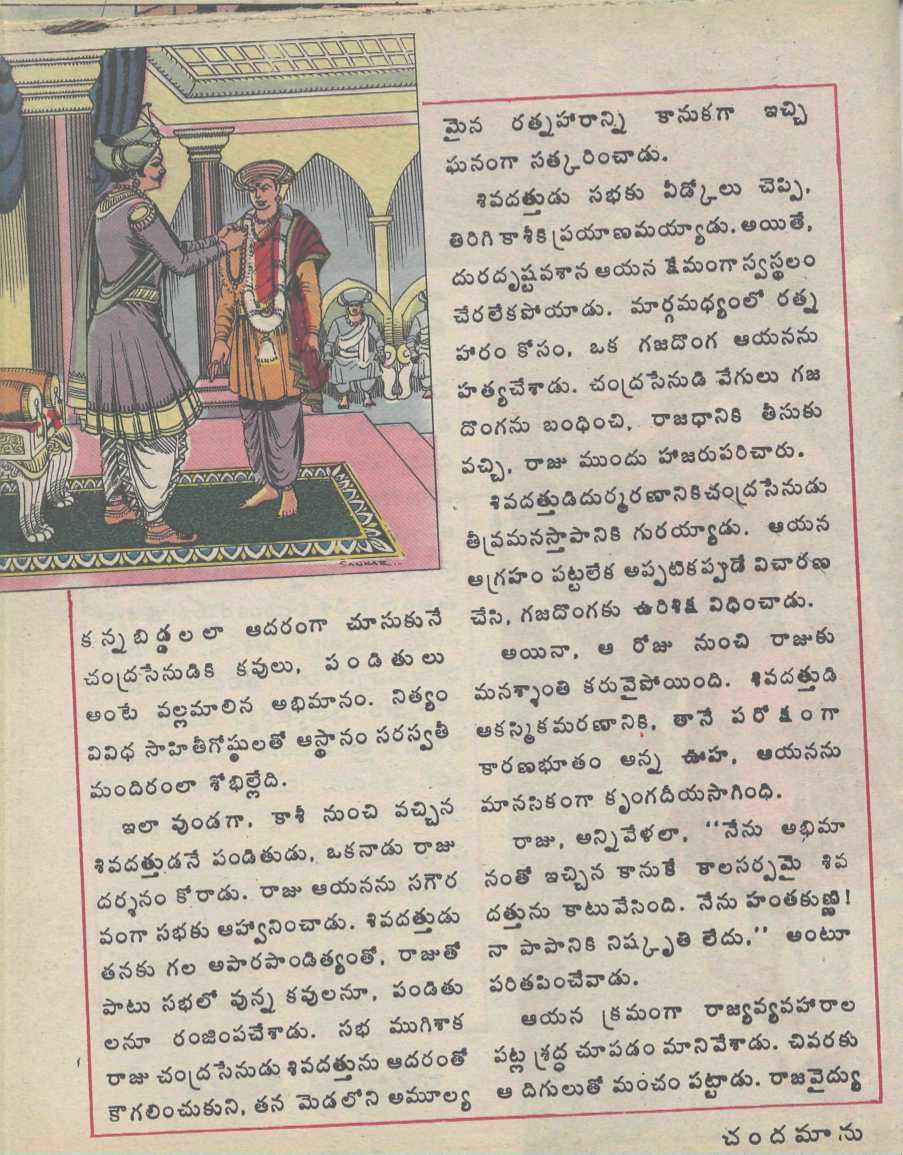 SANKAR...
కన్నబిడ్డలలా ఆదరంగా చూసుకునే
చంద్రసేనుడికి కవులు, పండితులు
అంటే వల్లమాలిన అభిమానం. నిత్యం
వివిధ సాహితీగోష్ఠులతో ఆస్థానం సరస్వతీ
మందిరంలా శోభిల్లేది.
ఇలా వుండగా, కాశీ నుంచి వచ్చిన
శివదత్తుడనే పండితుడు, ఒకనాడు రాజు
దర్శనం కోరాడు. రాజు ఆయనను సగౌర
వంగా సభకు ఆహ్వానించాడు. శివదత్తుడు
తనకు గల అపారపాండిత్యంతో, రాజుతో
పాటు సభలో వున్న కవులనూ, పండితు
లనూ రంజింపచేశాడు. సభ ముగిశాక
రాజు చంద్రసేనుడు శివదత్తును ఆదరంతో
కౌగలించుకుని, తన మెడలోని అమూల్య
మైన రత్నహారాన్ని కానుకగా ఇచ్చి
ఘనంగా సత్కరించాడు.
శివదత్తుడు సభకు వీడ్కోలు చెప్పి,
తిరిగి కాశీకి ప్రయాణమయ్యాడు. అయితే,
దురదృష్టవశాన ఆయన క్షేమంగా స్వస్థలం
చేరలేకపోయాడు. మార్గమధ్యంలో రత్న
హారం కోసం, ఒక గజదొంగ ఆయనను
హత్యచేశాడు. చంద్రసేనుడి వేగులు గజ
దొంగను బంధించి, రాజధానికి తీసుకు
వచ్చి, రాజు ముందు హాజరుపరిచారు.
శివదత్తుడిదుర్మరణానికిచంద్రసేనుడు
తీవ్రమనస్తాపానికి గురయ్యాడు. ఆయన
ఆగ్రహం పట్టలేక అప్పటికప్పుడే విచారణ
చేసి, గజదొంగకు ఉరిశిక్ష విధించాడు.
అయినా, ఆ రోజు నుంచి రాజుకు
మనశ్శాంతి కరువైపోయింది. శివదత్తుడి
ఆకస్మికమరణానికి, తానే పరోక్షంగా
కారణభూతం అన్న ఊహ, ఆయనను
మానసికంగా కృంగదీయసాగింధి.
రాజు, అన్నివేళలా, ‘‘నేను అభిమా
నంతో ఇచ్చిన కానుకే కాలసర్పమై శివ
దత్తును కాటువేసింది. నేను హంతకుణ్ణి!
నా పాపానికి నిష్కృతి లేదు,’’ అంటూ
పరితపించేవాడు.
ఆయన క్రమంగా రాజ్యవ్యవహారాల
పట్ల శ్రద్ధ చూపడం మానివేశాడు. చివరకు
ఆ దిగులుతో మంచం పట్టాడు. రాజవైద్యు
చందమామ